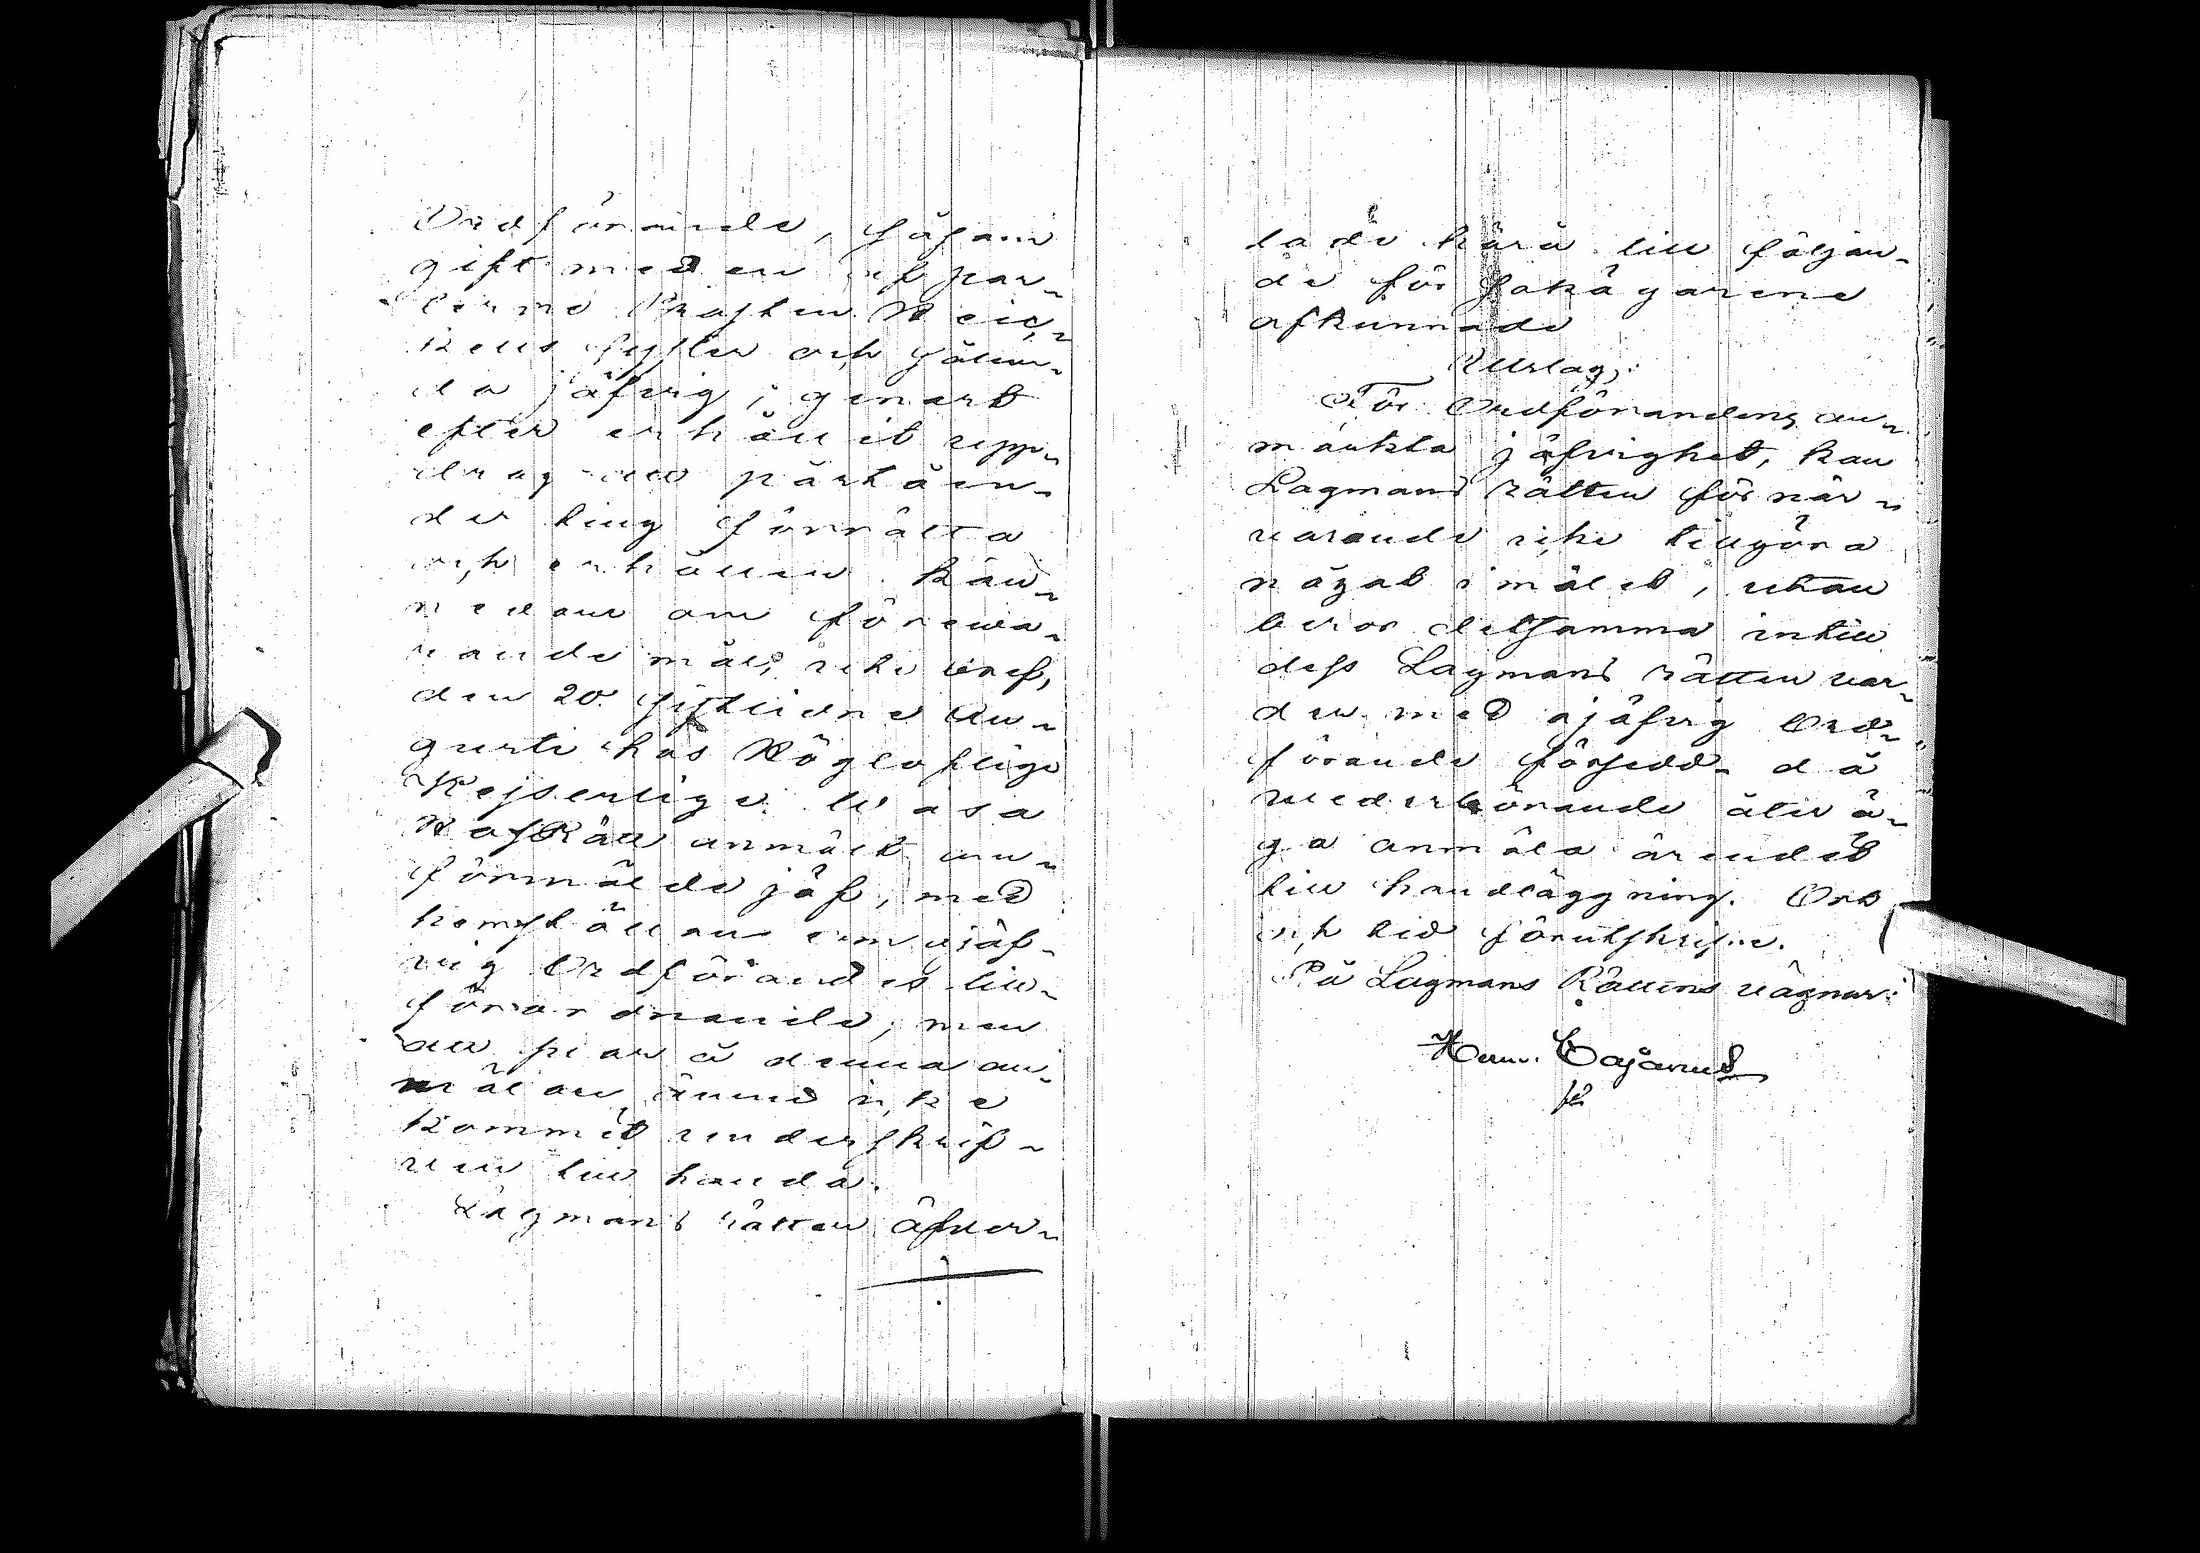 Ordförande, såsom
gift med en af par-
terne Prosten Weic-
kells syster och sålun-
da jäfvig, genast
efter erhållit upp-
drag att påstäen-
der ting förrätta
och erhållen kän-
nedom om föreva-
rande mål, icke
den 20 sistledne Au-
gusti hos Högloflige
Kejserlige Wasa
HofRätt anmält nu-
förmälde jäf, med
hemställan om ojäf-
vig Ordförandes till-
förordnande, men
att svar å denna an-
mälan ännu icke
kommit underskrif-
ven till handa.
Lagmans rätten äfver-
lade härå till följan-
de för sakägarene
afkunnade
Utslag:
För Ordförandens an-
märkta jäfvighet, kan
Lagmans rätten för när-
varande icke tillgöra
något i målet, utan
beror detsamma intill
dess Lagmans rätten var-
der med ojäfvig Ord-
förande försedd, då
vederbörande åter ä-
ga anmäla ärendet
till handläggning. Ort
och tid förutskrifne.
På Lagmans Rättens vägnar:
Herm. Cajanus